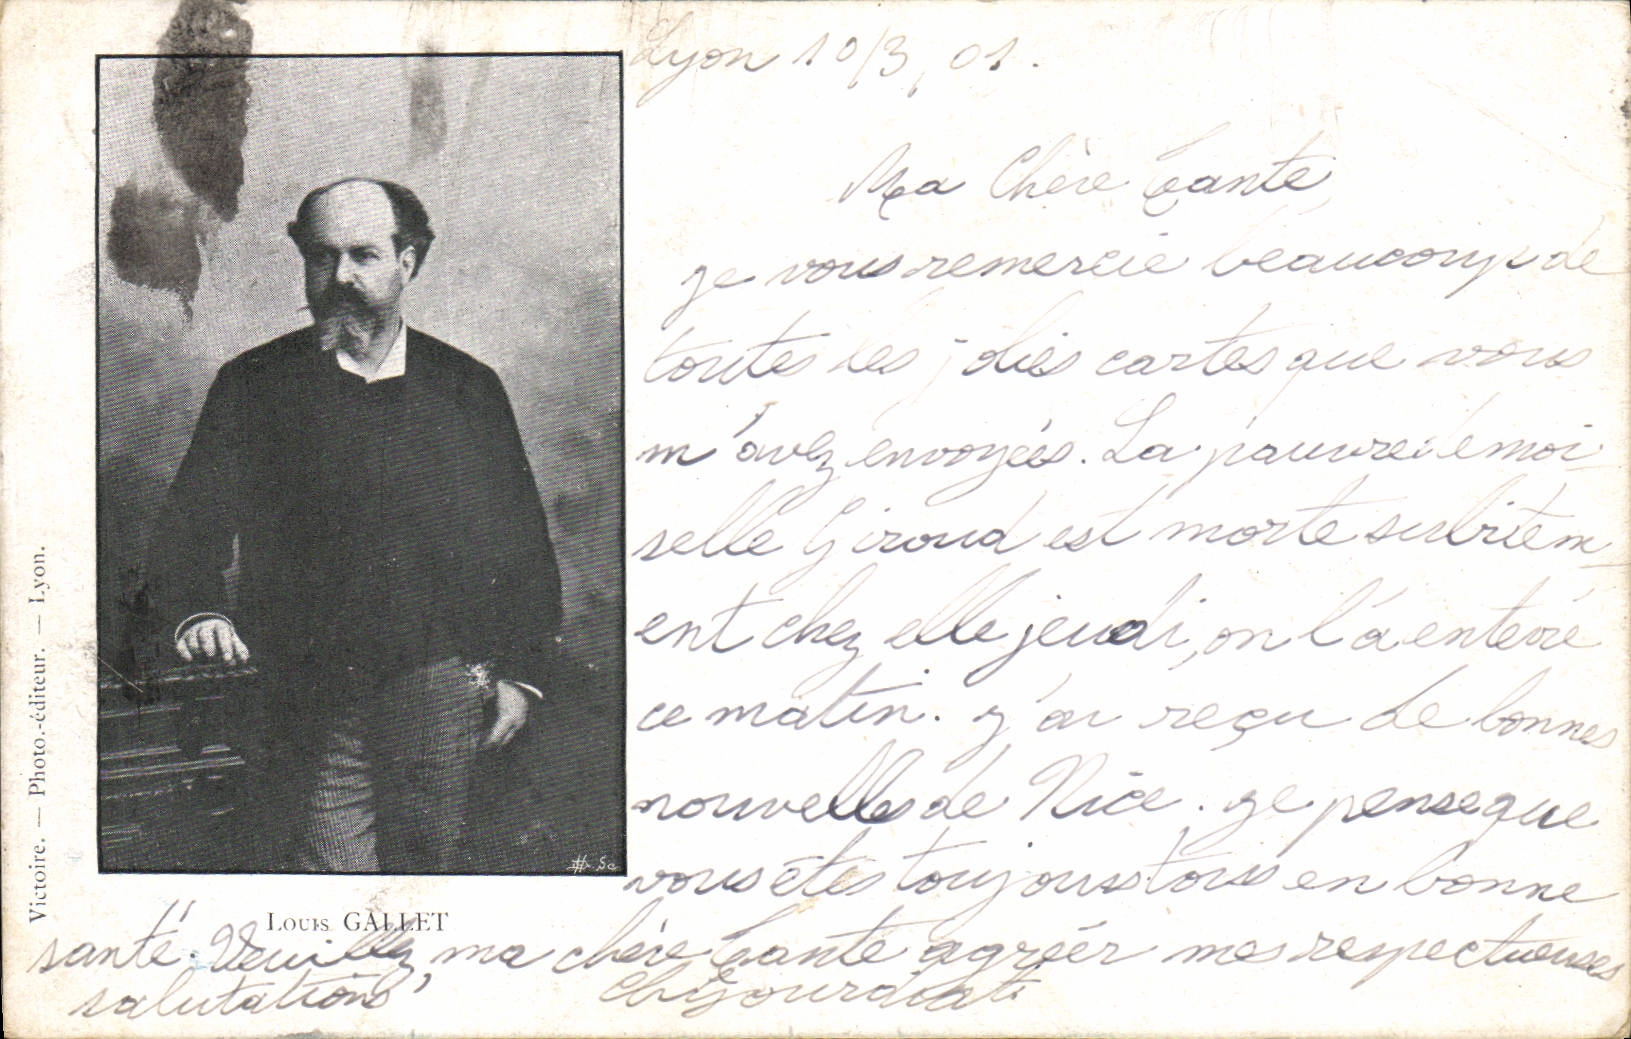 Lyon 10/3, 01.
Ma Chère Tante,
je vous remercie beaucoup de
toutes les jolies cartes que vous
m'avez envoyées. La pauvre demoi-
selle Giroud est morte subitem-
ent chez elle jeudi, on l'a enterré
ce matin. j'ai reçu de bonnes
nouvelles de Nice. je pense que
vous êtes toujours tous en bonne
santé. Veuillez, ma chère tante agréér mes respectueuses
salutations
Louis GALLET
Victoire. — Photo.-éditeur. — Lyon.